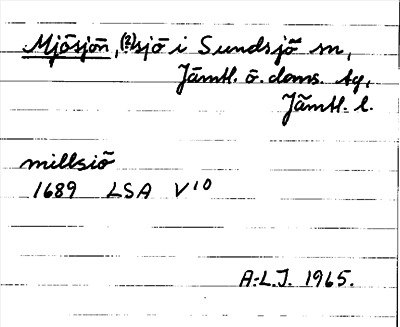 Mjösjön, (?)sjö i Sundsjö sn,
Jämtl. ö. doms. tg,
Jämtl. l.
millsiö
1689 LSA V¹⁰
A-L.J. 1965.